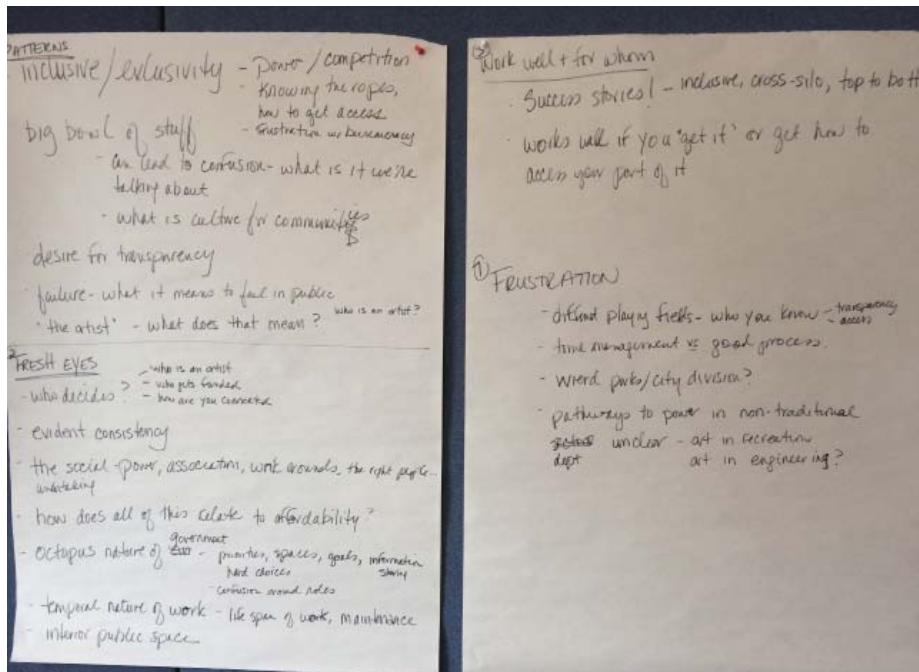 PATTERNS
- inclusive/exlusivity - power/competition
- Knowing the ropes,
how to get access
- frustration w/ bureaucracy
big bowl of stuff
- can lead to confusion - what is it we're
talking about
- what is culture for communities
desire for transparency
failure - what it means to fail in public
"the artist" - what does that mean? who is an artist?
FRESH EYES
- who decides? - who is an artist
- who gets funded
- how are you connected
- evident consistency
- the social - power, association, work arounds, the right people...
undertaking
- how does all of this relate to affordability?
- octopus nature of government - priorities, spaces, goals, information
hard choices sharing
confusion around roles
- temporal nature of work - life span of work, maintenance
- interior public space
Work well + for whom
- Success stories! - inclusive, cross-silo, top to bott
- works well if you "get it" or get how to
access your part of it
① FRUSTRATION
- different playing fields - who you know - transparency
- access
- time management vs good process.
- Wierd parks/city division?
- pathways to power in non-traditional
unclear - art in recreation
dept art in engineering?